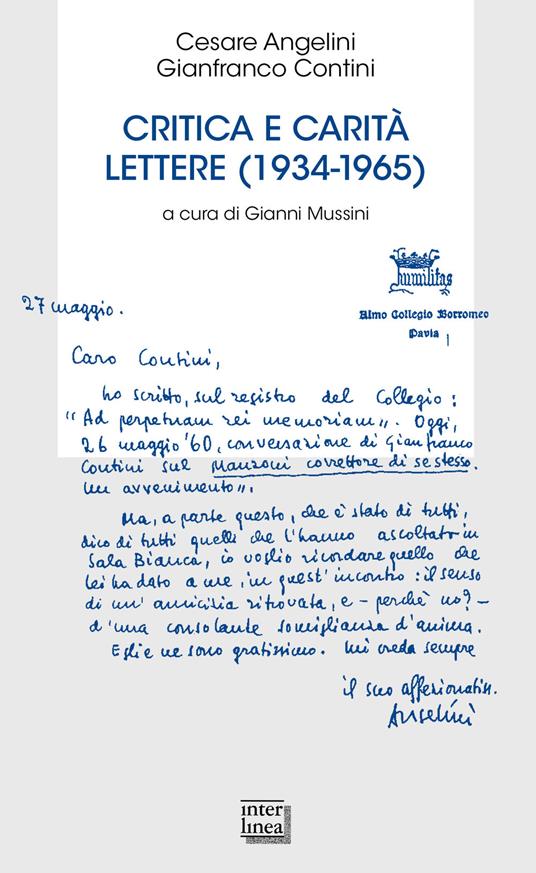 Cesare Angelini
Gianfranco Contini
CRITICA E CARITÀ
LETTERE (1934-1965)
a cura di Gianni Mussini
humilitas
Almo Collegio Borromeo
Pavia
27 maggio.
Caro Contini,
ho scritto, sul registro del Collegio:
“Ad perpetuam rei memoriam„. Oggi,
26 maggio '60, conversazione di Gianfranco
Contini sul Manzoni correttore di se stesso.
Un avvenimento„.
Ma, a parte questo, che è stato di tutti,
dico di tutti quelli che l'hanno ascoltato in
Sala Bianca, io voglio ricordare quello che
lei ha dato a me, in quest'incontro: il senso
di un'amicizia ritrovata, e – perchè no? –
d'una consolante somiglianza d'anima.
E glie ne sono gratissimo. Mi creda sempre
il suo affezionatiss.
Angelini
inter
linea